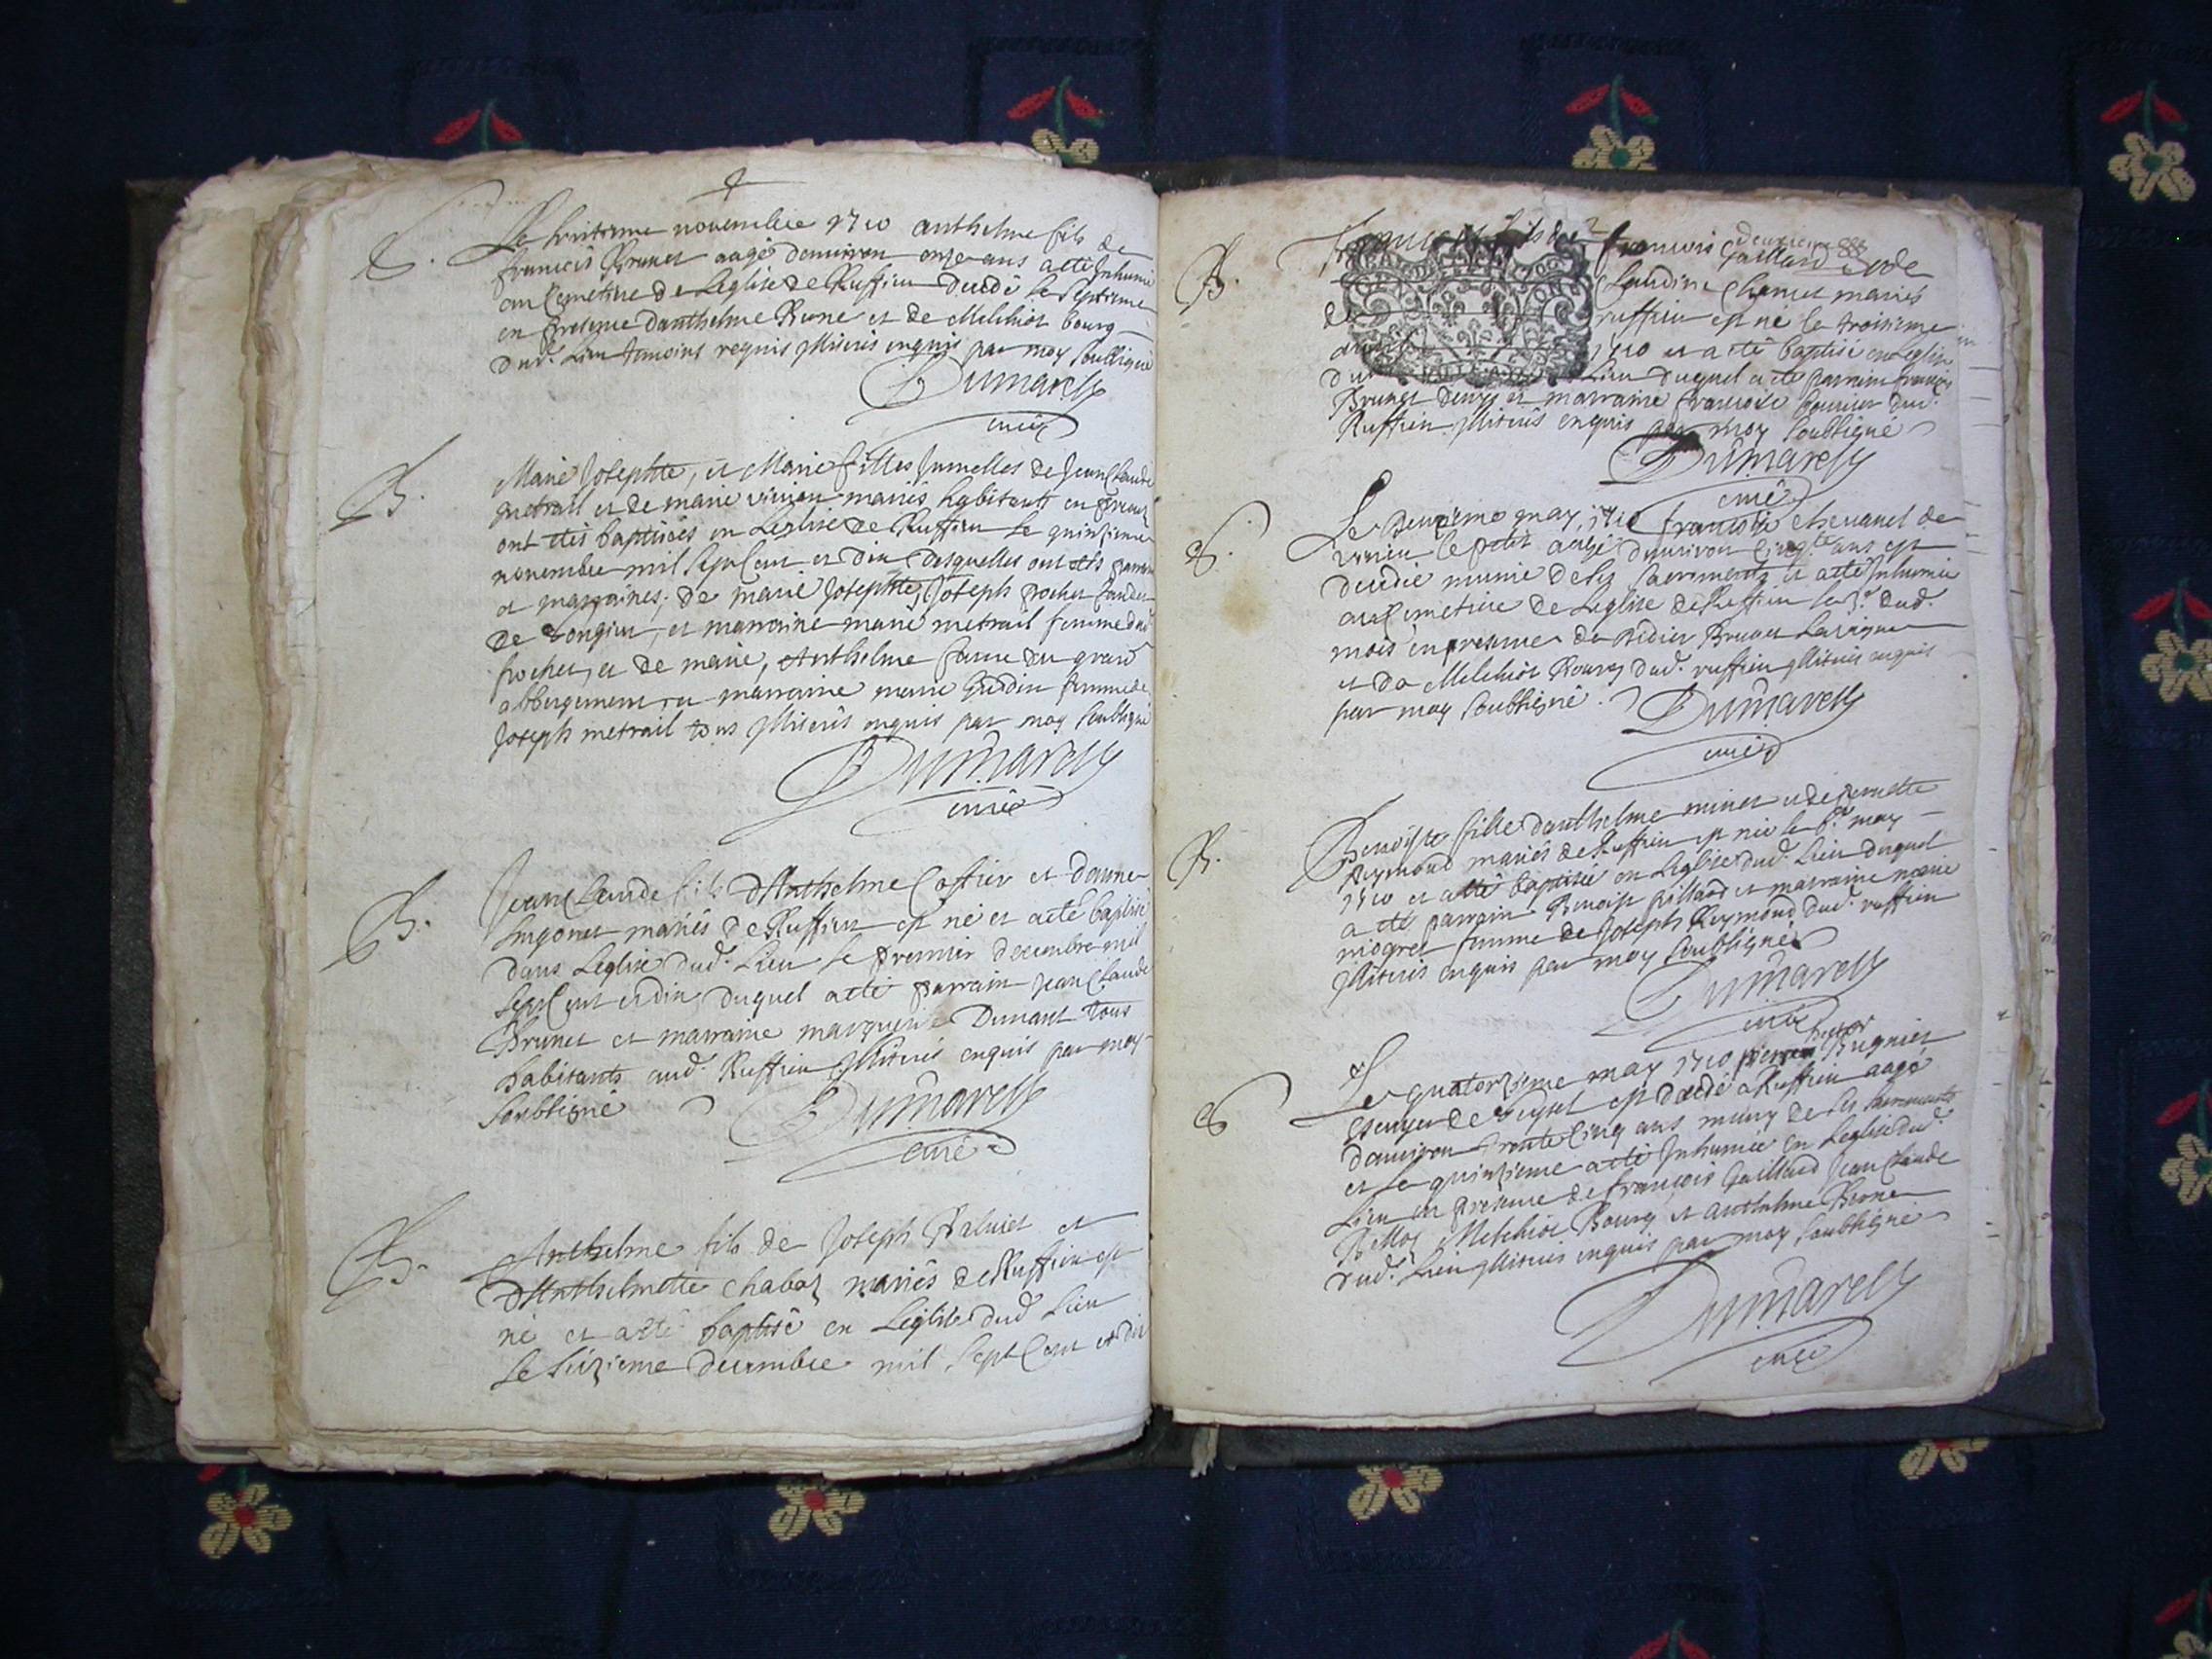 S.
Le huitieme novembre 1710 anthelme fils de
francois Brunet aagé denviron onze ans a esté Inhumé
au Cemetiere de Leglise de Ruffieu decedé le septieme
en presence danthelme Brune et de Melchiot bourg
dud. Lieu temoins requis Illiterés enquis par moy soubsigné
Dumarest
curé
B.
Marie Josephte, et Marie filles Jumelles de Jean Claude
metrail et de marie mariés habitants en
ont étés baptisées en Leglise de Ruffieu le quinzieme
novembre mil sept Cent et dix desquelles ont étés parrains
et marraines; de marie Josephte, Joseph frochet
de Songieu, et marraine marie metrail femme dud
frochet, et de marie, Anthelme du grand
abbergement, et marraine marie femme de
Joseph metrail tous Illiterés enquis par moy soubsigné
Dumarest
curé
B.
Jean Claude fils dAnthelme Coffier et danne
mariés de Ruffieu est né et a eté baptisé
dans Leglise dud. Lieu le premier decembre mil
sept Cent et dix duquel a eté parrain Jean Claude
Brunet et marraine Dunant tous
habitants aud. Ruffieu Illiterés enquis par moy
soubsigné
Dumarest
curé
B.
Anthelme fils de Joseph et
dAnthelmette mariés de Ruffieu est
né et a eté baptisé en Leglise dud Lieu
le seizieme decembre mil sept Cent et dix
2
deuxieme
B.
francois fils de francois Gaillard et de
Claudine mariés
de ruffieu est né le troisieme
1710 et a eté baptisé en Leglise
du Lieu duquel a eté parrain francois
Brunet et marraine francoise dud.
Ruffieu Illiterés enquis par moy soubsigné
Dumarest
curé
S.
Le deuxieme may 1710 francois Chevanel de
virieu le petit aagé denviron cinqte ans est
decedé munie de ses sacrements et a eté Inhumée
au Cemetiere de Leglise de Ruffieu le 3e dud.
mois en presence de didier Brunet
et de Melchiot Bourg dud. ruffieu Illiterés enquis
par moy soubsigné.
Dumarest
curé
B.
Benoiste fille danthelme minet et de
Reymond mariés de Ruffieu est née le 6e may
1710 et a eté baptisée en Leglise dud. Lieu duquel
a eté parrain Benoist Gillard et marraine marie
femme de Joseph Reymond dud. ruffieu
Illiterés enquis par moy soubsigné
Dumarest
curé
S
Le quatorzieme may 1710
est decedé a Ruffieu aagé
denviron trente cinq ans muny de ses sacrements
et le quinzieme a eté Inhumé en Leglise dud.
Lieu en presence de francois Gaillard Jean Claude
Melchiot Bourg et anthelme Brune
dud. Lieu Illiterés enquis par moy soubsigné
Dumarest
curé